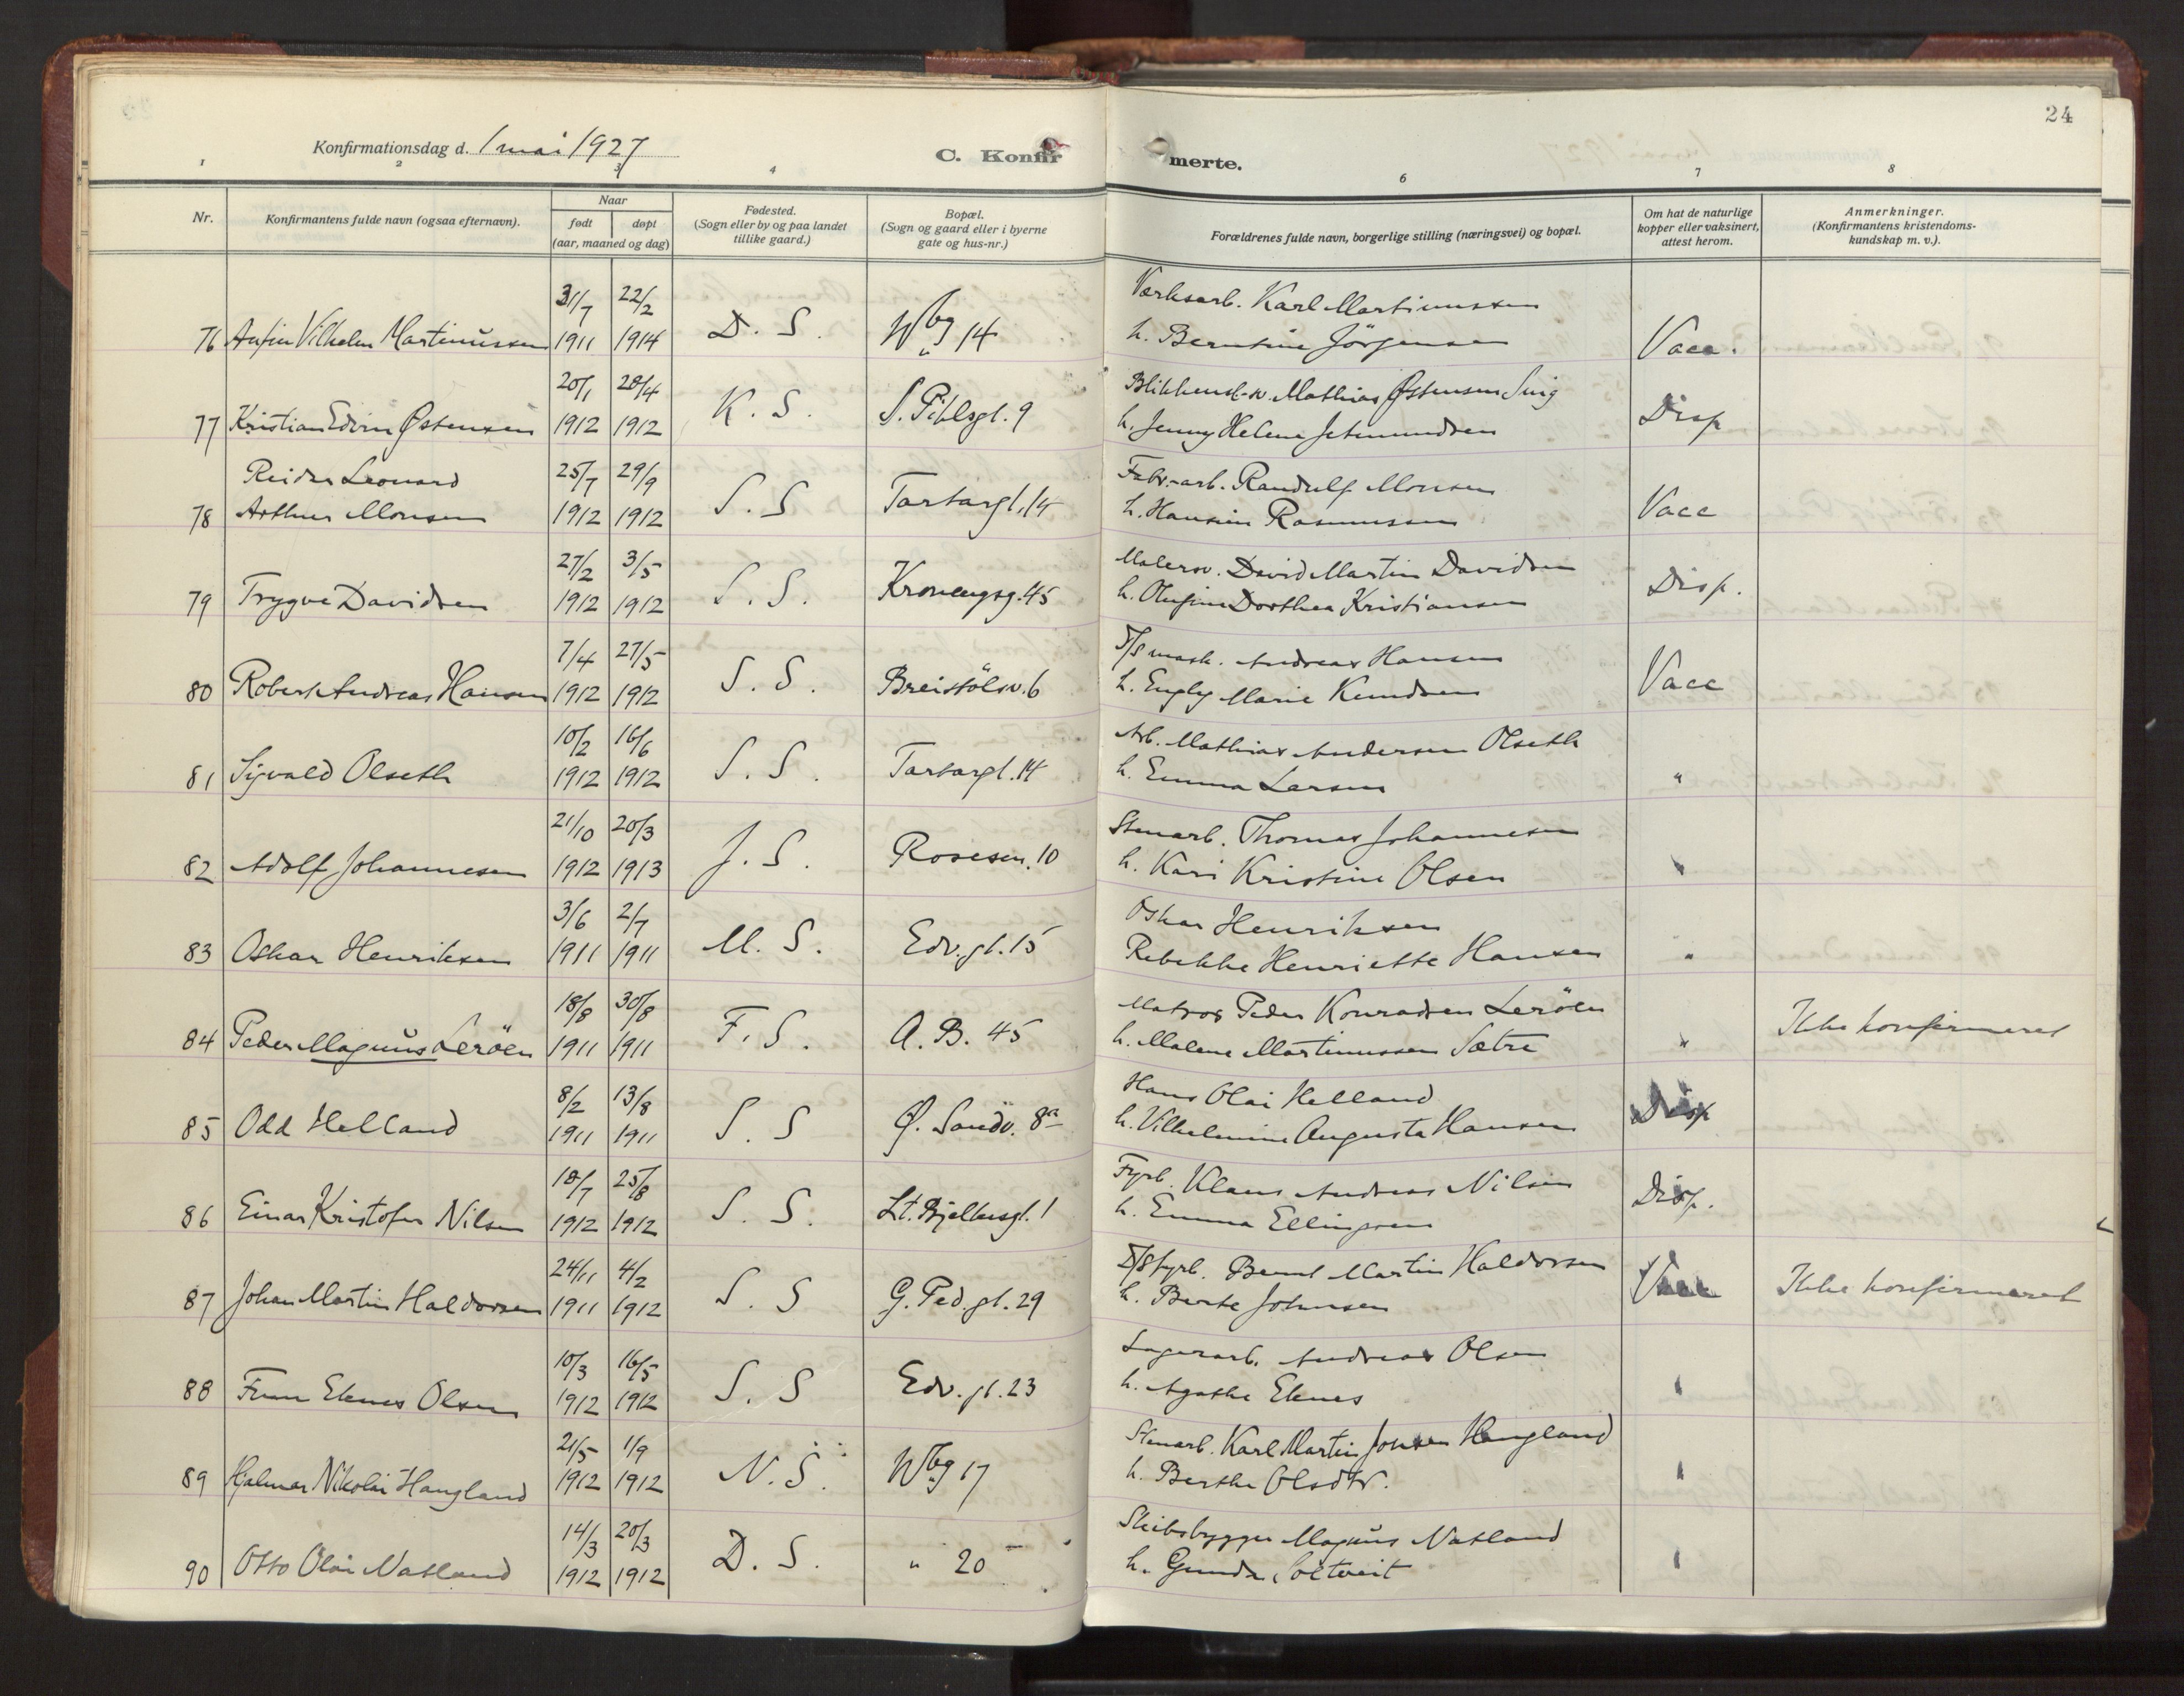 24
Konfirmationsdag d. 1 mai 1927
C. Konfirmerte.
1 2 3 4 6 7 8
Nr.
Konfirmantens fulde navn (ogsaa efternavn).
Naar
født døpt
(aar, maaned og dag)
Fødested.
(Sogn eller by og paa landet
tillike gaard.)
Bopæl.
(Sogn og gaard eller i byerne
gate og hus-nr.)
Forældrenes fulde navn, borgerlige stilling (næringsvei) og bopæl.
Om hat de naturlige
kopper eller vaksinert,
attest herom.
Anmerkninger.
(Konfirmantens kristendoms-
kundskap m. v.).
31/7 22/2 Værksarb. Karl Martinussen
76 Arfin Vilhelm Martinussen 1911 1914 D. S. Wbg 14 h. Berntine Jörgensen Vacc.
20/1 28/4 Blikkensl.-sv. Mathias Østensen
77 Kristian Edvin Østensen 1912 1912 K. S. S. Pihlsgt. 9 h. Jenny Helene Jetmundsen Disp
Reidar Leonard 25/7 29/9 Fabr.-arb. Randulf Monsen
78 Arthur Monsen 1912 1912 S. S Tartargt. 14 h. Hansine Rasmussen Vacc
27/2 3/5 Malersv. David Martin Davidsen
79 Trygve Davidsen 1912 1912 S. S. Kronengsg. 45 h. Olufine Dorthea Kristiansen Disp.
7/4 27/5 D/S mask. Andreas Hansen
80 Robert Andreas Hansen 1912 1912 S. S. Breistölsv. 6 h. Engly Marie Knudsen Vacc
10/2 16/6 Arb. Mathias Andersen Olseth
81 Sigvald Olseth 1912 1912 S. S. Tartargt. 14 h. Emma Larsen "
21/10 20/3 Stenarb. Thomas Johannesen
82 Adolf Johannesen 1912 1913 J. S. Rosesm. 10 h. Kari Kristine Olsen "
3/6 2/7 Oskar Henriksen
83 Oskar Henriksen 1911 1911 M. S. Edv. gt. 15 Rebekke Henriette Hansen "
18/8 30/8 Matros Peder Konradsen Leröen
84 Peder Magnus Leröen 1911 1911 F. S. A. B. 45 h. Malene Martinussen Sætre " Ikke konfirmeret
8/2 13/8 Hans Olai Helland
85 Odd Helland 1911 1911 S. S Ø. Sandv. 8a h. Vilhelmine Augusta Hansen Disp
18/7 25/8 Fyrb. Klaus Andreas Nilsen
86 Einar Kristofer Nilsen 1912 1912 S. S. Lt. Bjelkesgt. 1 h. Emma Ellingsen Disp.
24/11 4/2 D/S fyrb. Bernt Martin Haldorsen
87 Johan Martin Haldorsen 1911 1912 S. S G. Ped. gt. 29 h. Berte Johnsen Vacc Ikke konfirmeret
10/3 16/5 Lagerarb. Andreas Olsen
88 Finn Eknes Olsen 1912 1912 S. S Edv. gt. 23 h. Agathe Eknes "
21/5 1/9 Stenarb. Karl Martin Jonsen Haugland
89 Hjalmar Nikolai Haugland 1912 1912 N. S. Wbg 17 h. Berthe Olsdtr. "
14/3 20/3 Skibsbygger Magnus Natland
90 Otto Olai Natland 1912 1912 D. S. " 20 h. Gunda Soltveit "